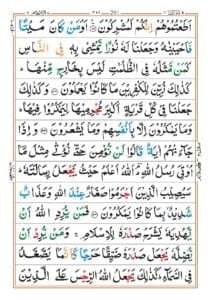 اَطَعْتُمُوْهُمْ اِنَّكُمْ لَمُشْرِكُوْنَ ۞ اَوَمَنْ كَانَ مَيْتًا
فَاَحْيَيْنٰهُ وَجَعَلْنَا لَهٗ نُوْرًا يَّمْشِيْ بِهٖ فِي النَّاسِ
كَمَنْ مَّثَلُهٗ فِي الظُّلُمٰتِ لَيْسَ بِخَارِجٍ مِّنْهَا ؕ
كَذٰلِكَ زُيِّنَ لِلْكٰفِرِيْنَ مَا كَانُوْا يَعْمَلُوْنَ ۞ وَكَذٰلِكَ
جَعَلْنَا فِيْ كُلِّ قَرْيَةٍ اَكٰبِرَ مُجْرِمِيْهَا لِيَمْكُرُوْا
فِيْهَا ؕ وَمَا يَمْكُرُوْنَ اِلَّا بِاَنْفُسِهِمْ وَمَا يَشْعُرُوْنَ ۞ وَاِذَا
جَآءَتْهُمْ اٰيَةٌ قَالُوْا لَنْ نُّؤْمِنَ حَتّٰى نُؤْتٰى مِثْلَ مَآ
اُوْتِيَ رُسُلُ اللّٰهِ ؕ اَللّٰهُ اَعْلَمُ حَيْثُ يَجْعَلُ رِسَالَتَهٗ ؕ
سَيُصِيْبُ الَّذِيْنَ اَجْرَمُوْا صَغَارٌ عِنْدَ اللّٰهِ وَعَذَابٌ
شَدِيْدٌۢ بِمَا كَانُوْا يَمْكُرُوْنَ ۞ فَمَنْ يُّرِدِ اللّٰهُ اَنْ
يَّهْدِيَهٗ يَشْرَحْ صَدْرَهٗ لِلْاِسْلَامِ ۚ وَمَنْ يُّرِدْ اَنْ
يُّضِلَّهٗ يَجْعَلْ صَدْرَهٗ ضَيِّقًا حَرَجًا كَاَنَّمَا يَصَّعَّدُ
فِي السَّمَآءِ ؕ كَذٰلِكَ يَجْعَلُ اللّٰهُ الرِّجْسَ عَلَى الَّذِيْنَ